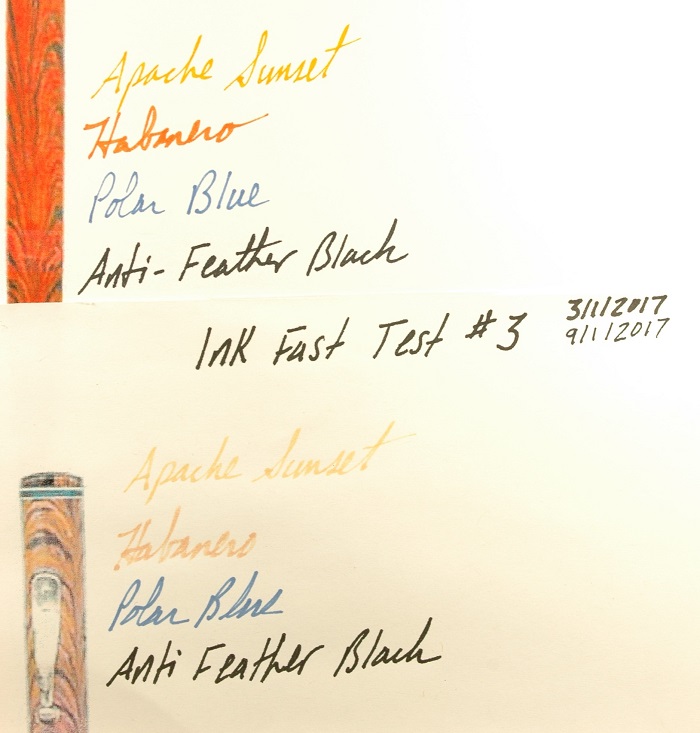 Apache Sunset
Habanero
Polar Blue
Anti-Feather Black
Ink Fast Test #3
3/1/2017
9/1/2017
Apache Sunset
Habanero
Polar Blue
Anti Feather Black